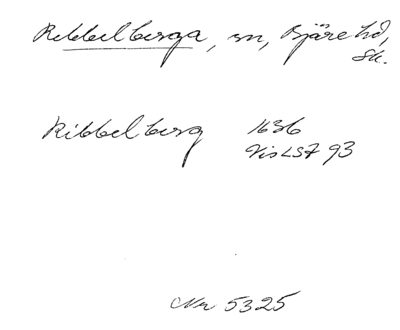 Ribbelberga, sn, Bjäre hd,
Sk.
Ribbelberg 1636
VisLSF 93
Nr 5325